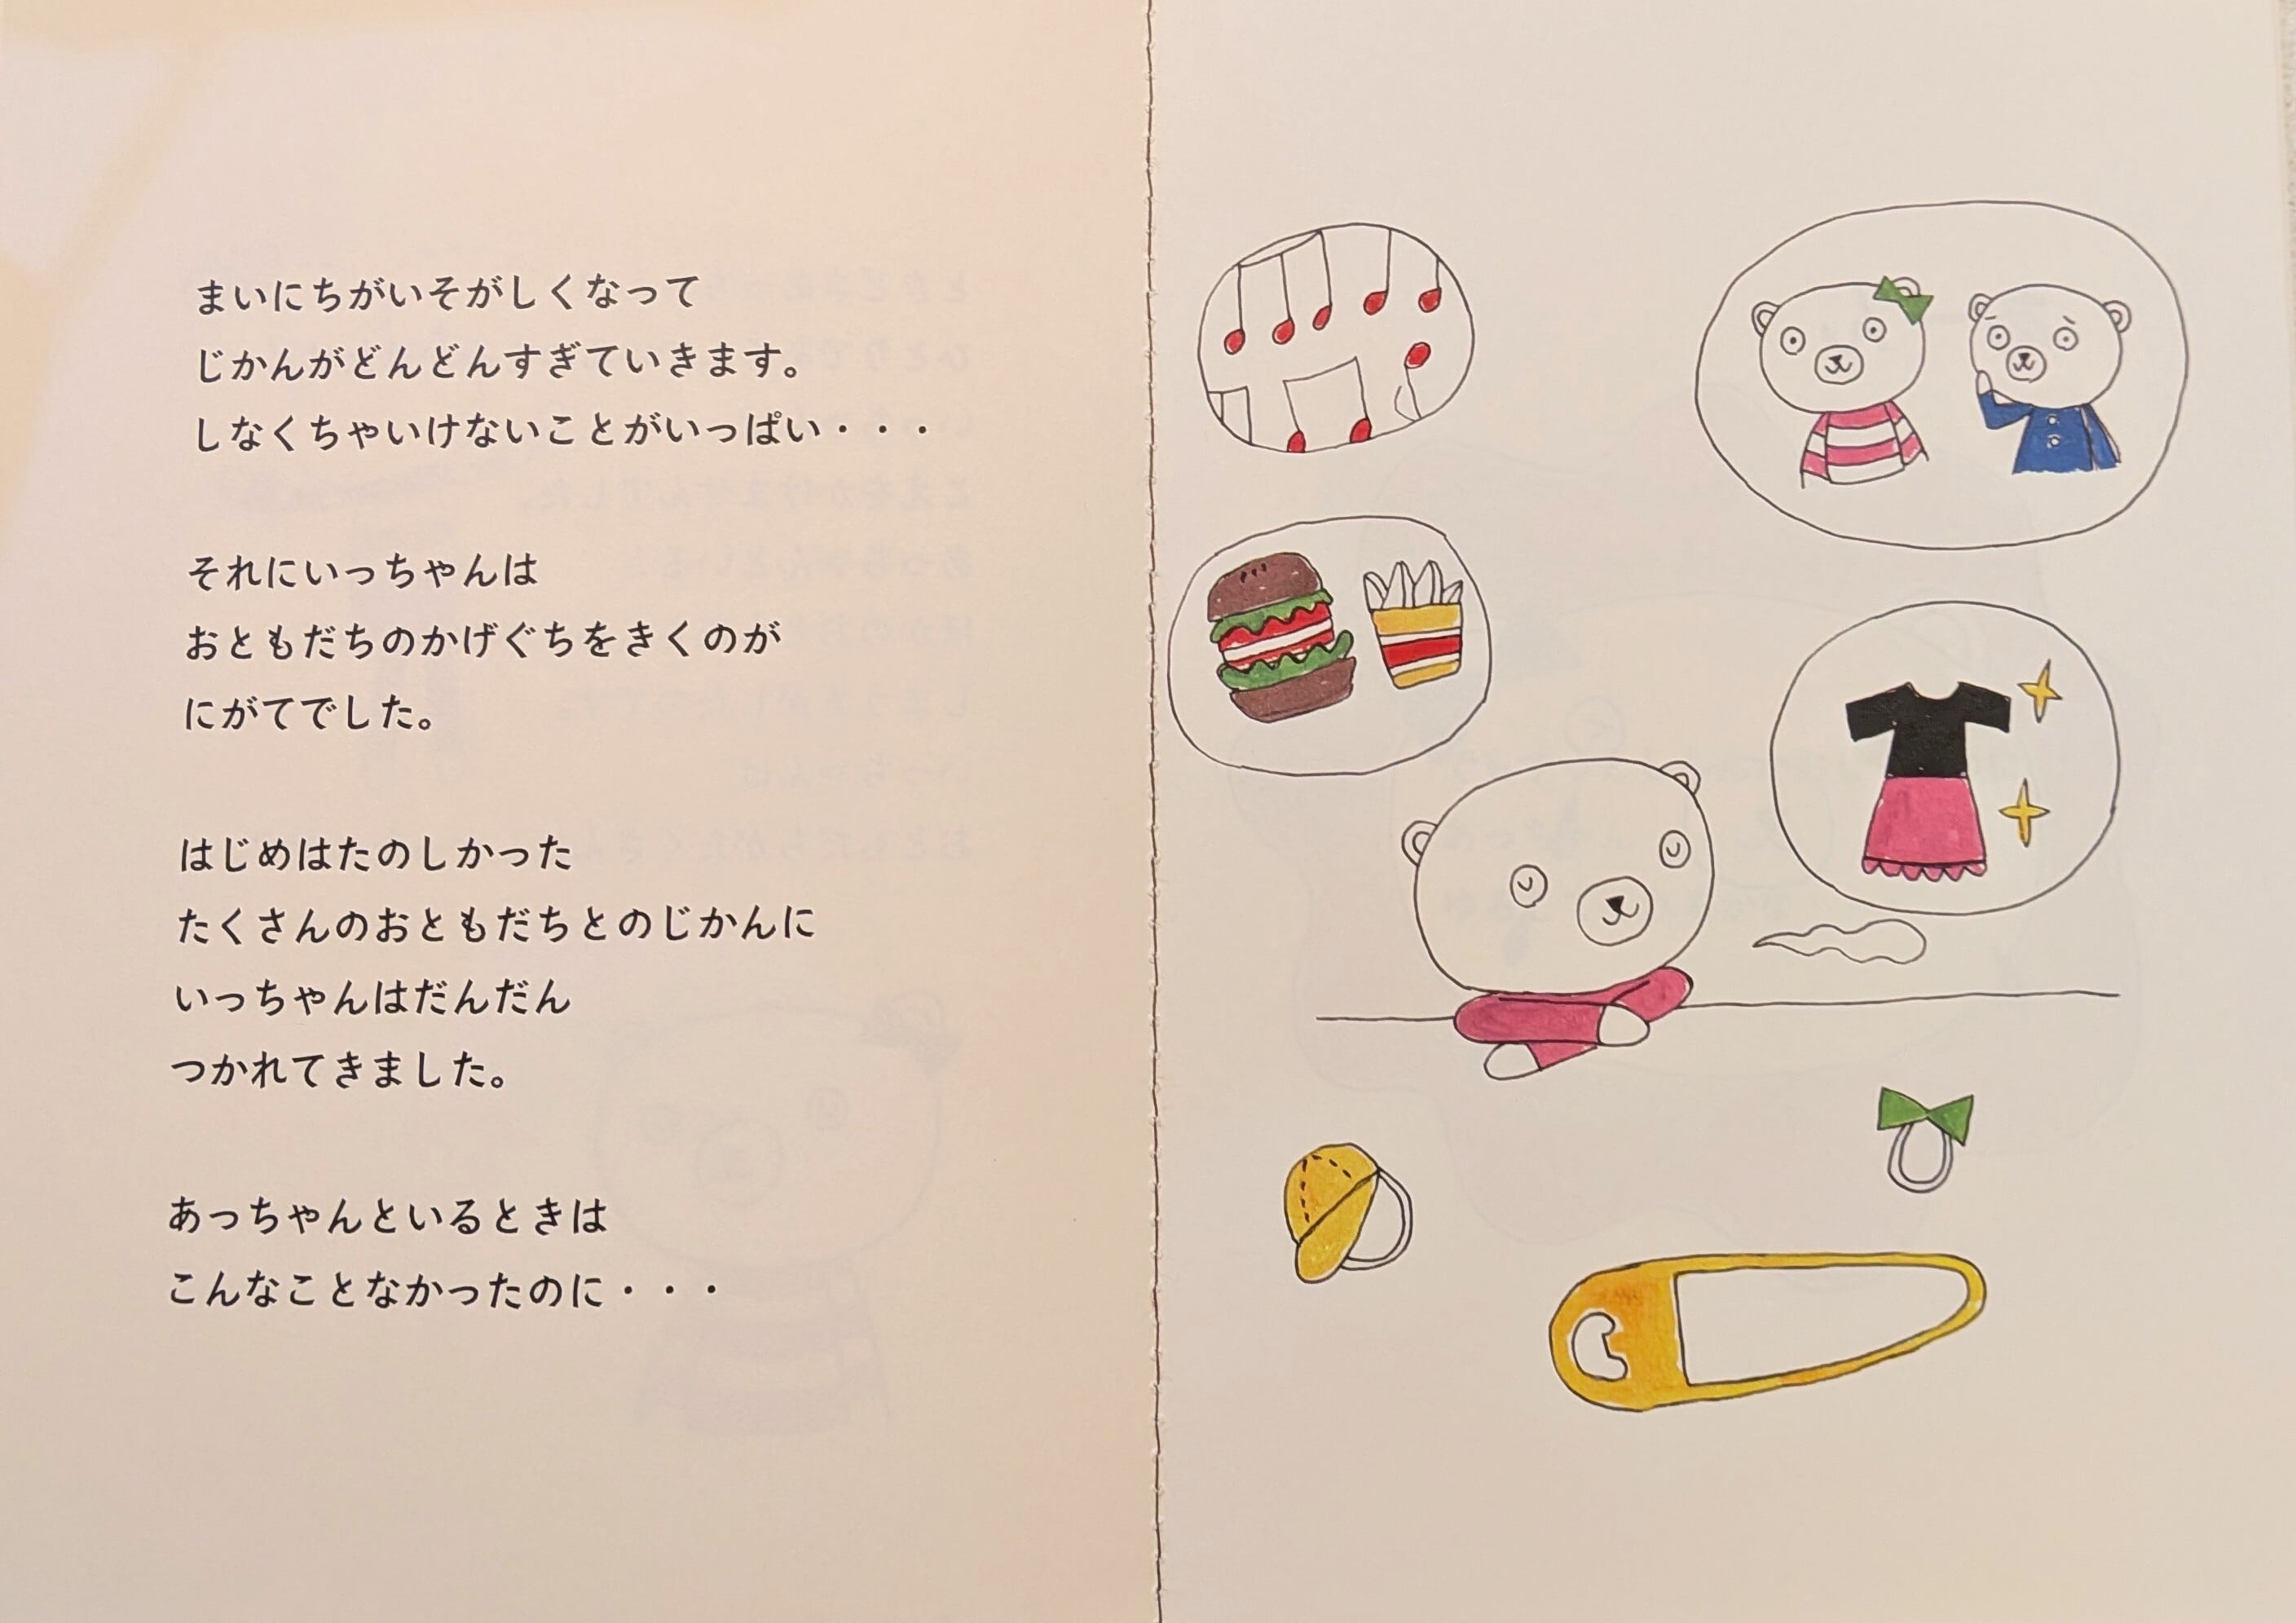 まいにちがいそがしくなって
じかんがどんどんすぎていきます。
しなくちゃいけないことがいっぱい・・・
それにいっちゃんは
おともだちのかげぐちをきくのが
にがてでした。
はじめはたのしかった
たくさんのおともだちとのじかんに
いっちゃんはだんだん
つかれてきました。
あっちゃんといるときは
こんなことなかったのに・・・